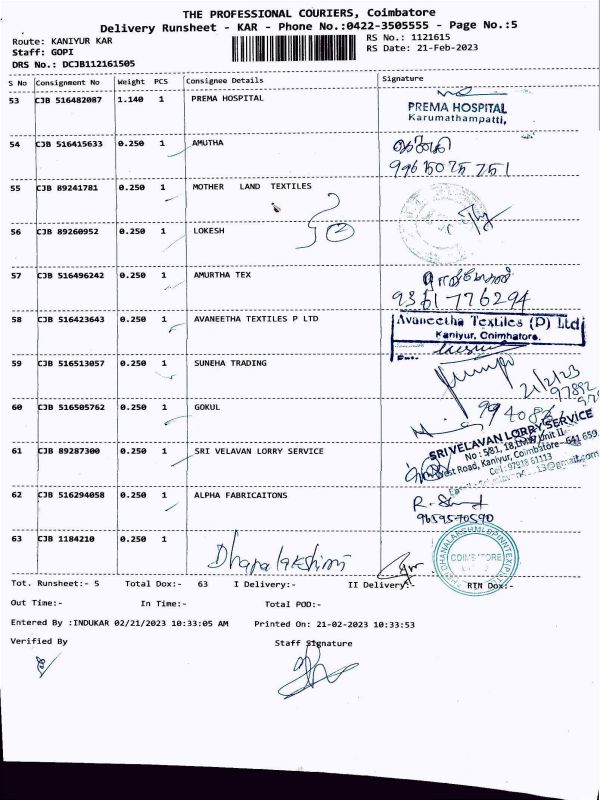 THE PROFESSIONAL COURIERS, Coimbatore
Delivery Runsheet - KAR - Phone No.:0422-3505555 - Page No.:5
Route: KANIYUR KAR
RS No.: 1121615
Staff: GOPI
RS Date: 21-Feb-2023
DRS No.: DCJB112161505
S No Consignment No Weight PCS Consignee Details Signature
53 CJB 516482087 1.140 1 PREMA HOSPITAL
PREMA HOSPITAL
Karumathampatti,
54 CJB 516415633 0.250 1 AMUTHA
9965075751
55 CJB 89241781 0.250 1 MOTHER LAND TEXTILES
56 CJB 89260952 0.250 1 LOKESH
57 CJB 516496242 0.250 1 AMURTHA TEX
9361776294
58 CJB 516423643 0.250 1 AVANEETHA TEXTILES P LTD
Avaneetha Textiles (P) Ltd
Kaniyur, Coimbatore.
59 CJB 516513057 0.250 1 SUNEHA TRADING
21/2/23
97892
60 CJB 516505762 0.250 1 GOKUL
61 CJB 89287300 0.250 1 SRI VELAVAN LORRY SERVICE
SRI VELAVAN LORRY SERVICE
West Road, Kaniyur, Coimbatore - 641 659
Cell : 97918 61113
62 CJB 516294058 0.250 1 ALPHA FABRICAITONS
63 CJB 1184210 0.250 1
Dhanalakshmi
COIMBATORE
Tot. Runsheet:- 5 Total Dox:- 63 I Delivery:- II Delivery:- RTN Dox:-
Out Time:- In Time:- Total POD:-
Entered By :INDUKAR 02/21/2023 10:33:05 AM Printed On: 21-02-2023 10:33:53
Verified By Staff Signature